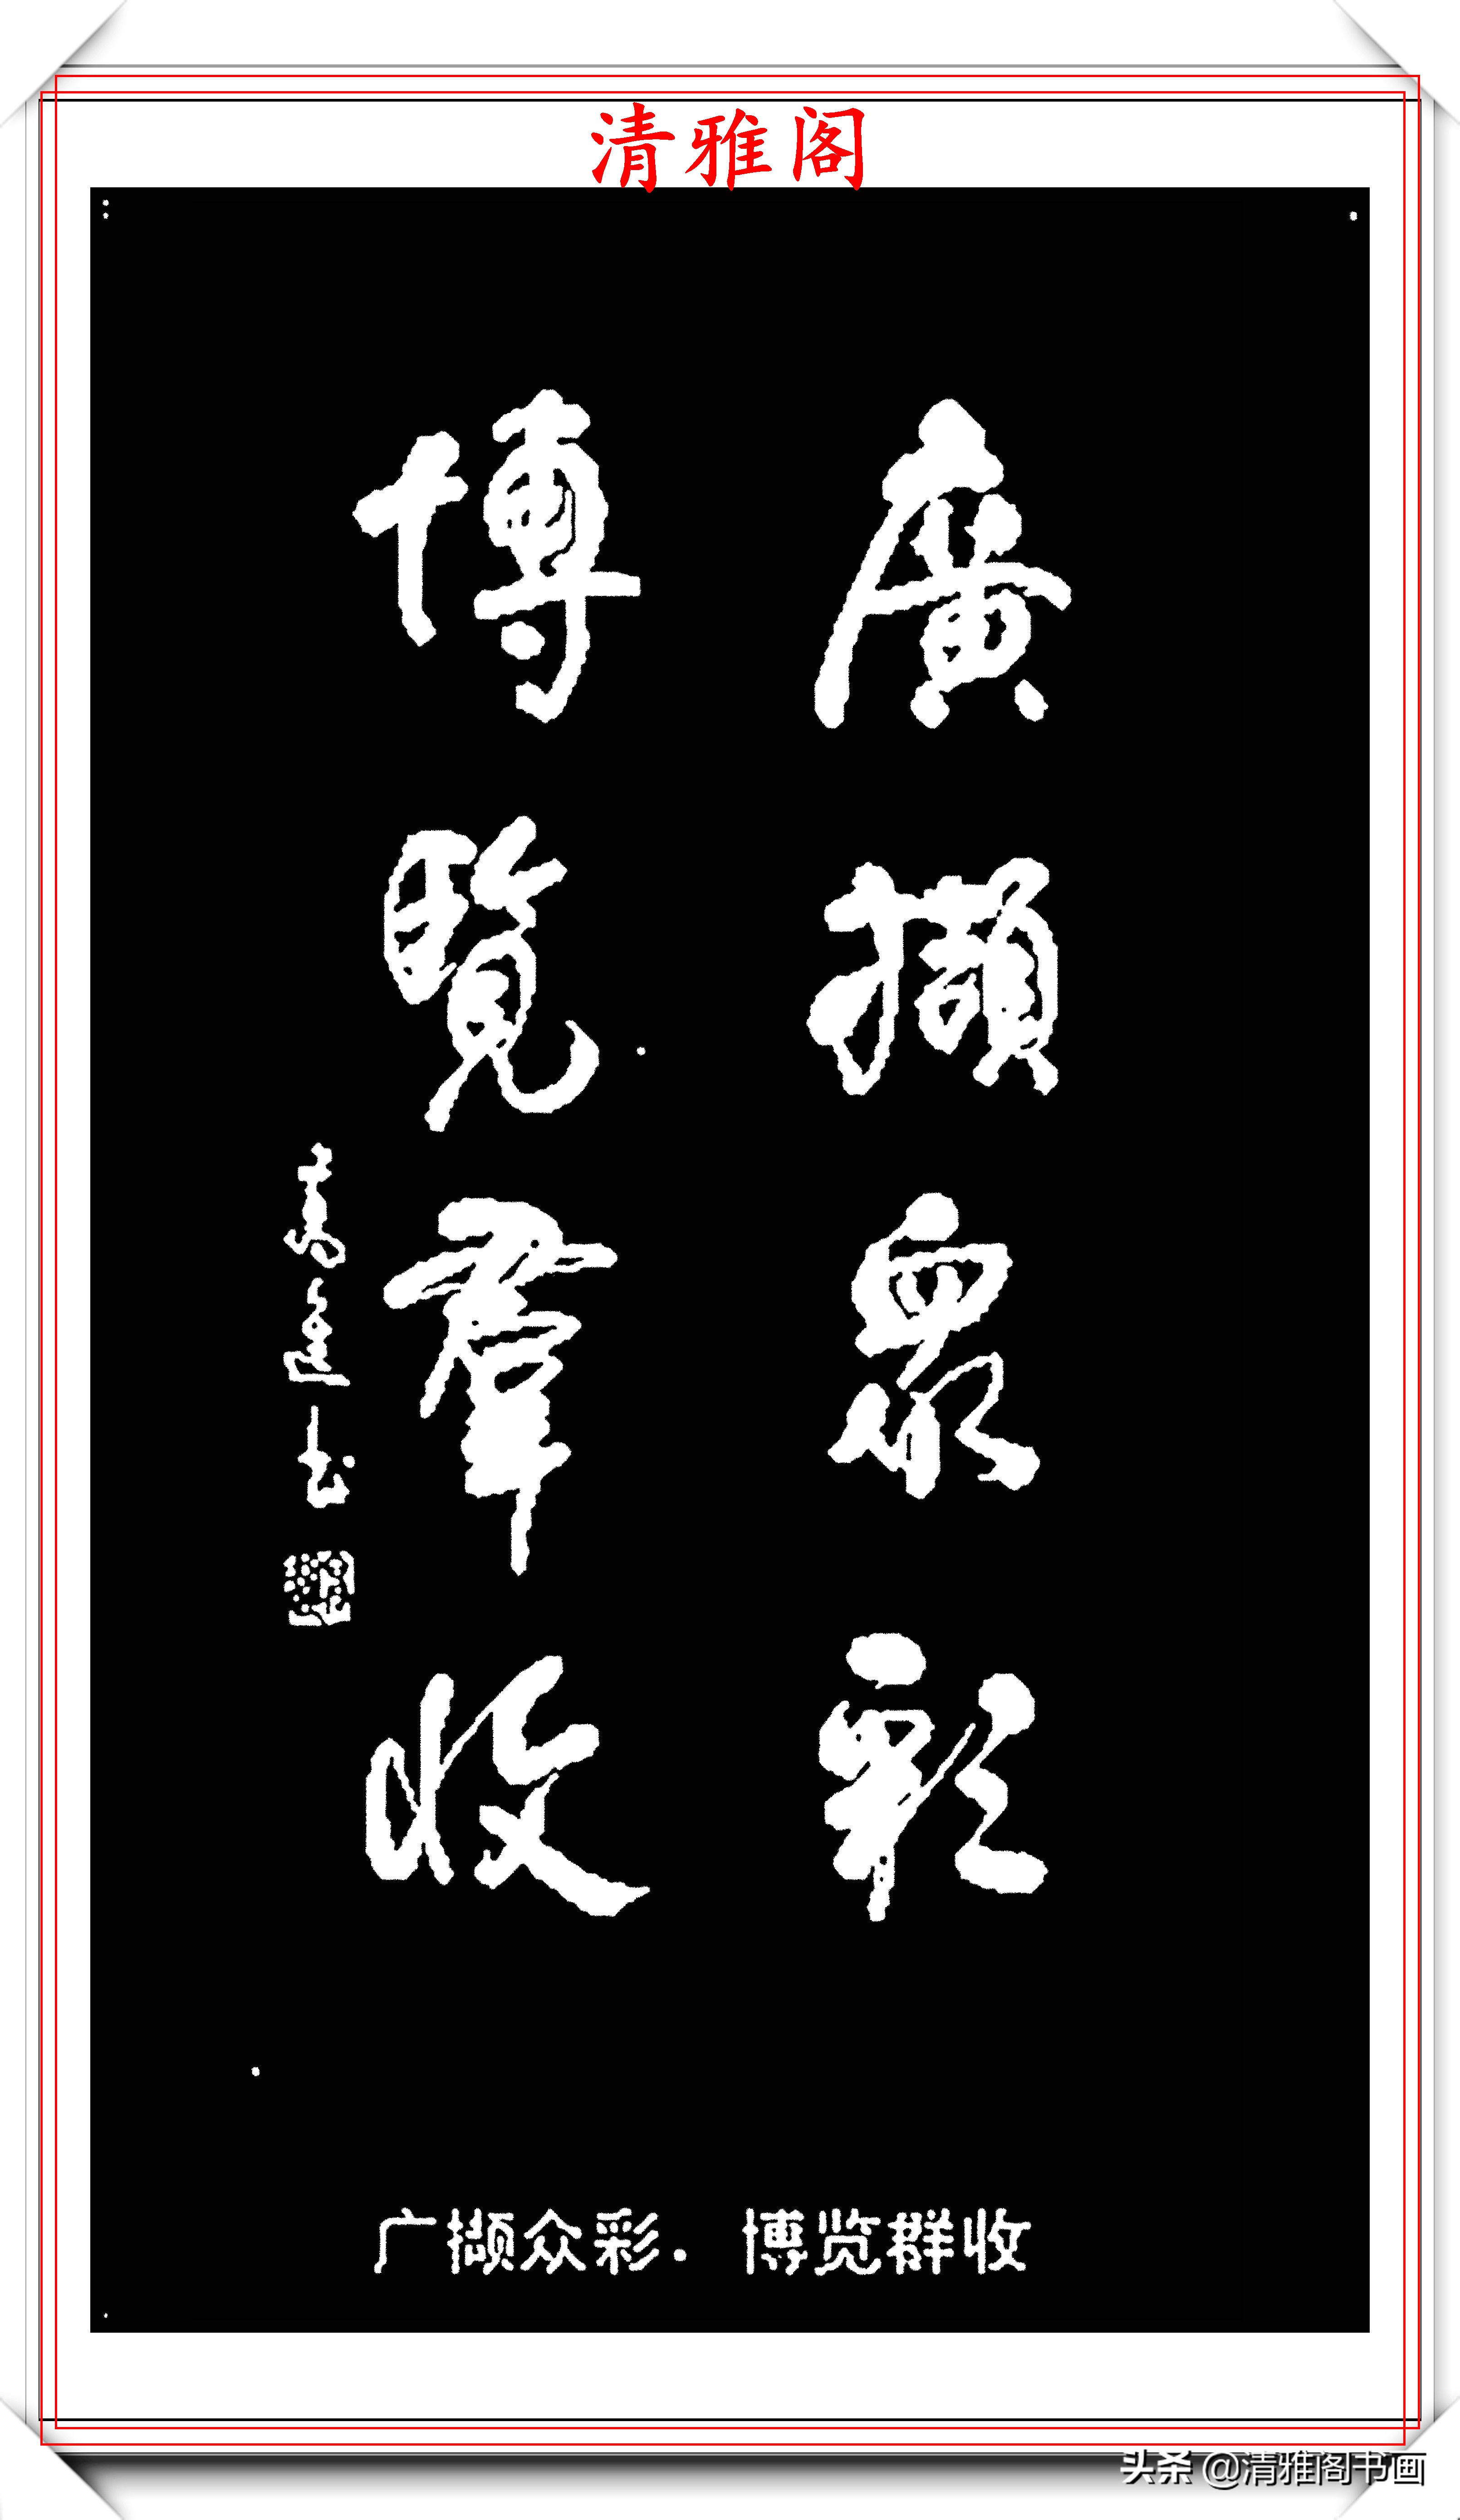 清雅阁
廣擷衆彩
博覽羣收
广撷众彩．博览群收
头条 @清雅阁书画